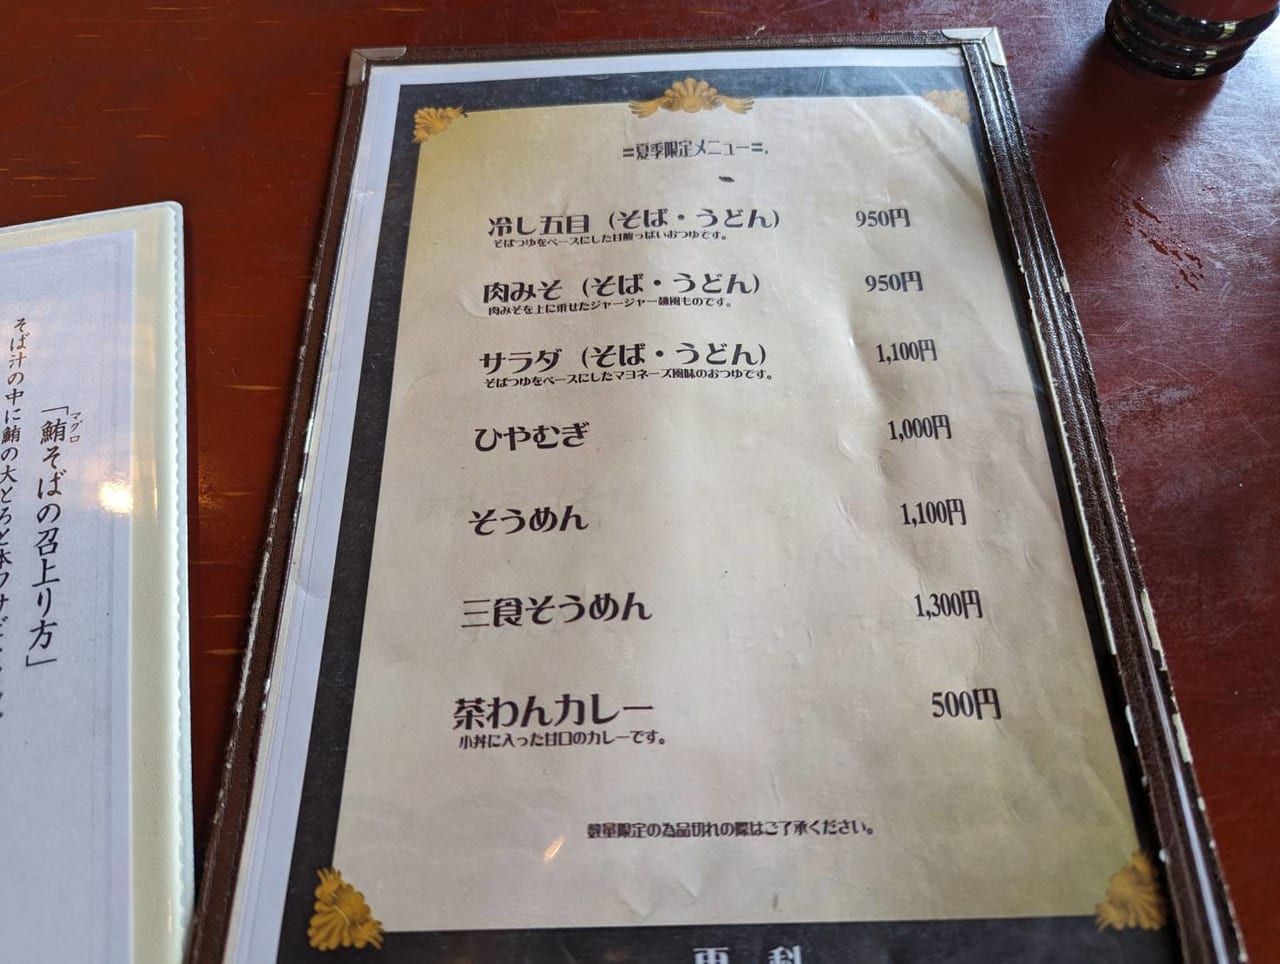 =夏季限定メニュー=.
冷し五目（そば・うどん） 950円
そばつゆをベースにした甘酸っぱいおつゆです。
肉みそ（そば・うどん） 950円
肉みそを上に乗せたジャージャー麺風ものです。
サラダ（そば・うどん） 1,100円
そばつゆをベースにしたマヨネーズ風味のおつゆです。
ひやむぎ 1,000円
そうめん 1,100円
三食そうめん 1,300円
茶わんカレー 500円
小丼に入った甘口のカレーです。
数量限定の為品切れの際はご了承ください。
更科
マグロ
「鮪そばの召上り方」
そば汁の中に鮪の大とろと本ワサビ